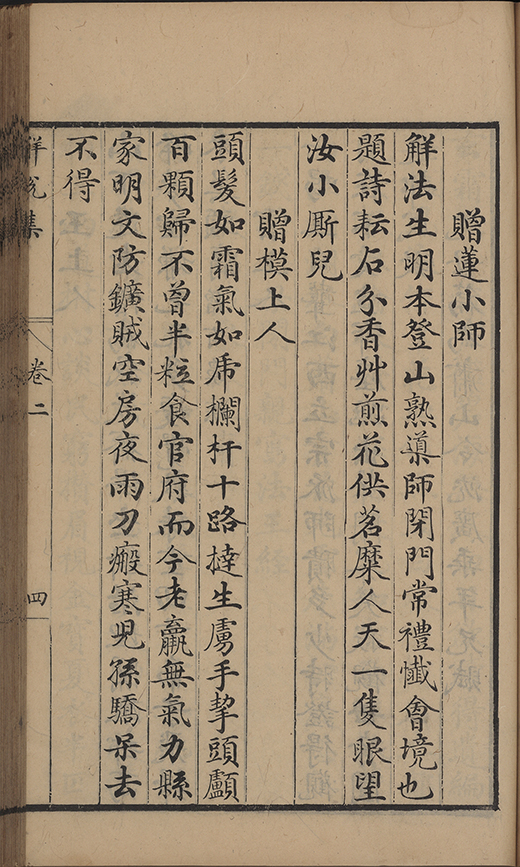 贈蓮小師
解法生明本登山熟導師閉門常禮懺會境也
題詩耘石分香艸煎花供茗糜人天一隻眼望
汝小厮兒
贈模上人
頭髮如霜氣如虎欄杆十路撻生虜手挈頭顱
百顆歸不曾半粒食官府而今老羸無氣力縣
家明文防鑛賊空房夜雨刀瘢寒児孫驕呆去
不得
集
卷二
四